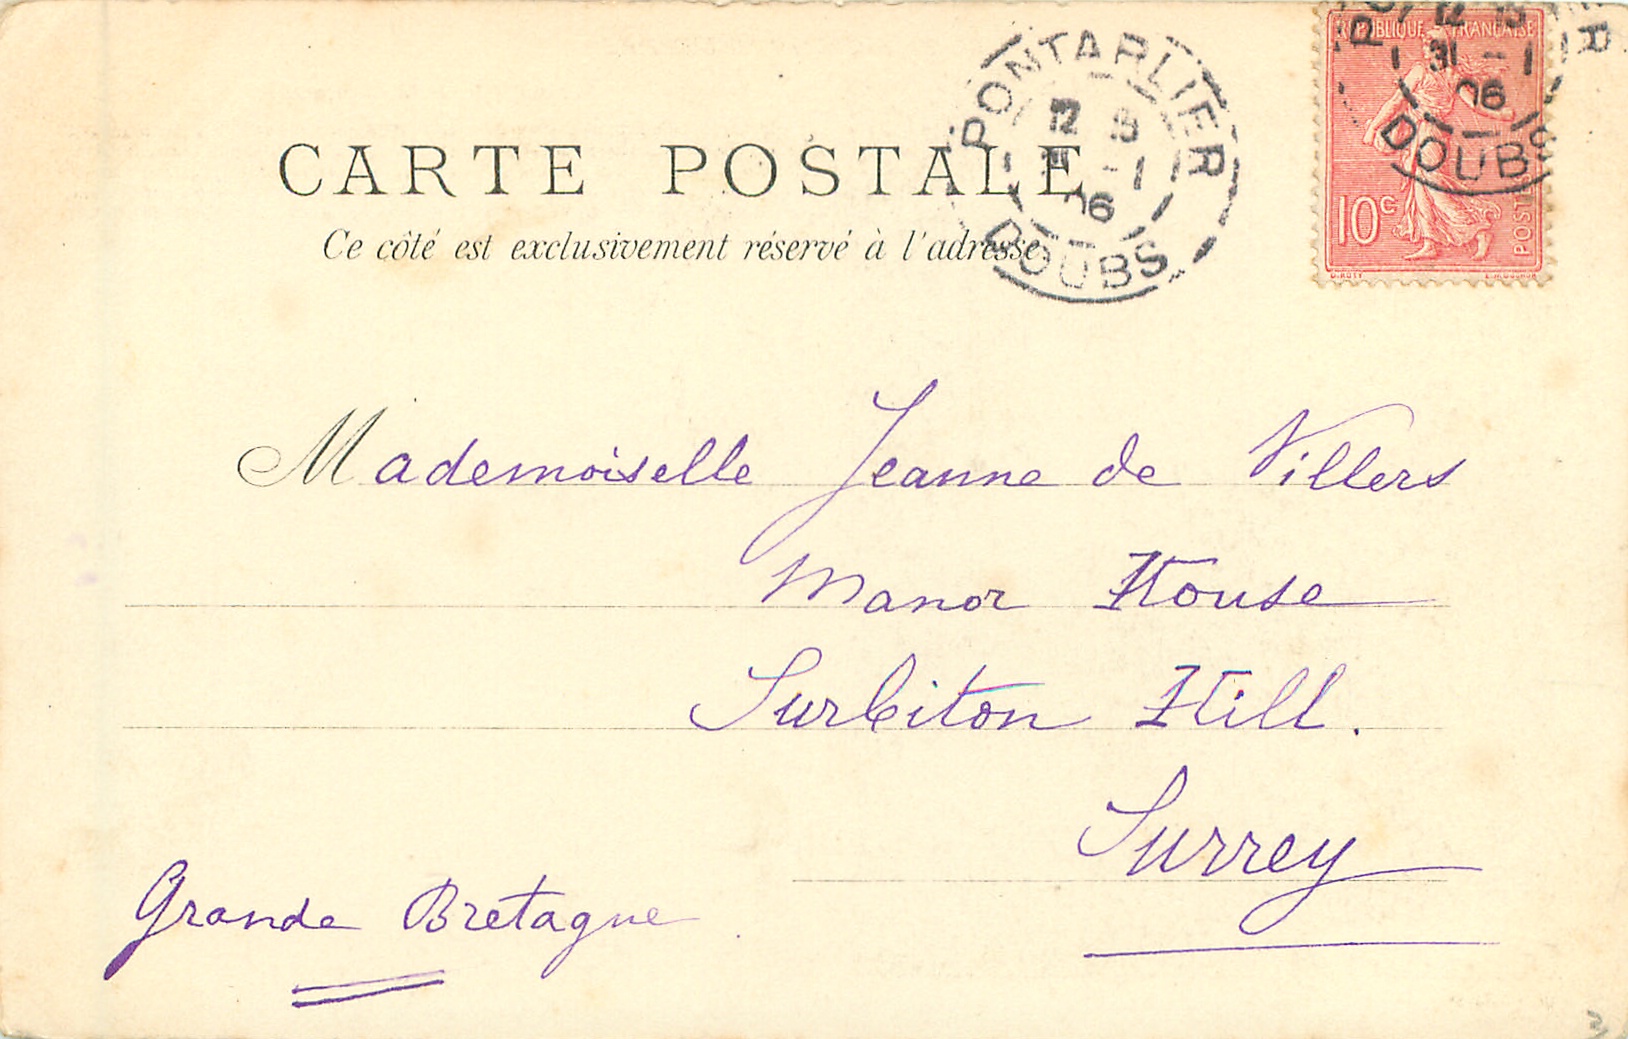 CARTE POSTALE
Ce côté est exclusivement réservé à l'adresse
PONTARLIER
12
-1
06
DOUBS
RÉPUBLIQUE FRANÇAISE
12 15
31 -1
06
DOUBS
10c
POSTES
O. ROTY
L. MOUCHON
Mademoiselle Jeanne de Villers
Manor House
Surbiton Hill.
Surrey
Grande Bretagne
3